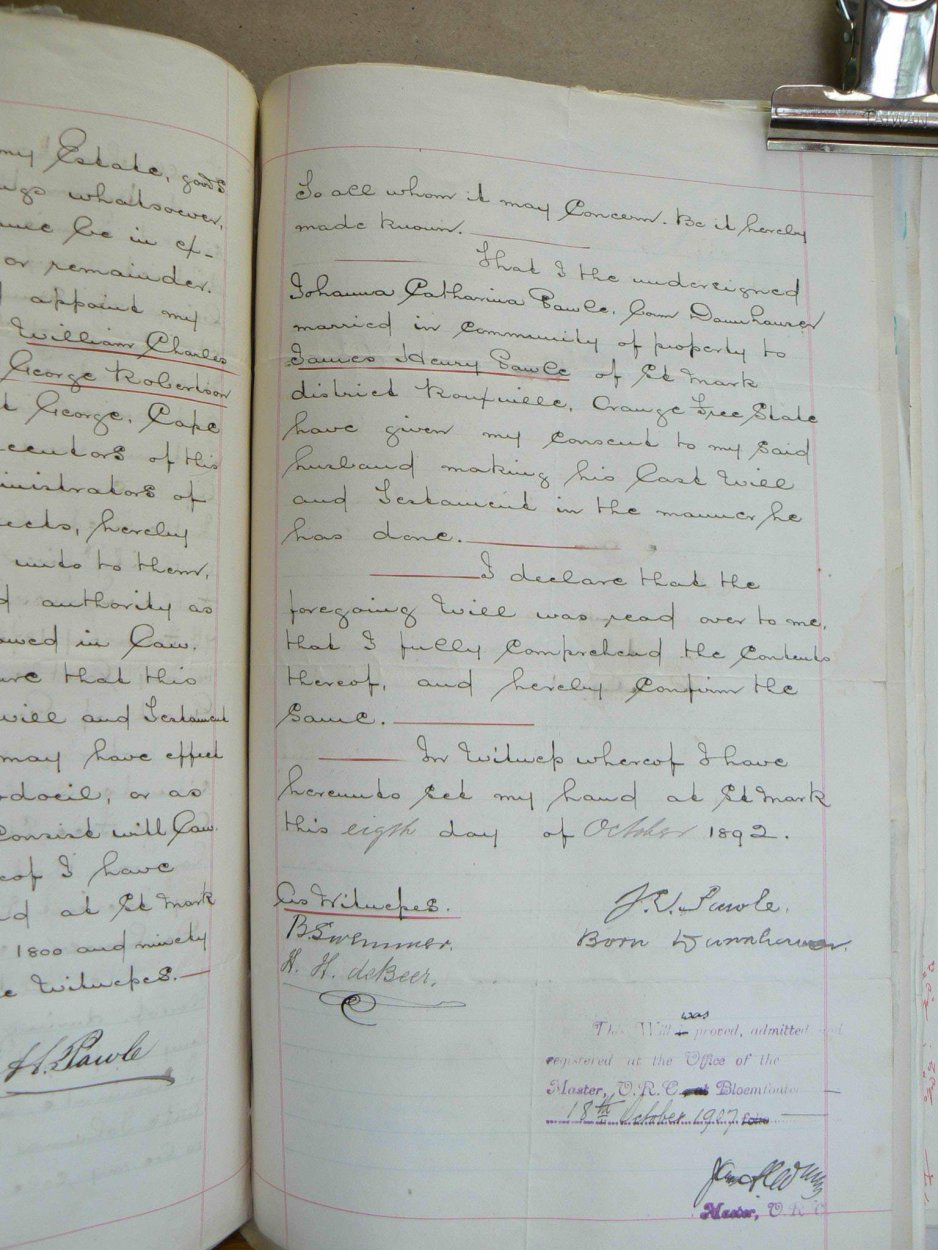 my Estate, goods
ings whatsoever,
ance be in ex-
or remainder.
appoint my
William Charles
George Robertson
George, Cape
ecutors of this
ministrators of
ects, hereby
unto to them,
d authority as
owed in Law.
are that this
will and Testament
may have effect
odocil, or as
Consist will Law.
eof I have
d at St Mark
1800 and ninety
e Witnesses.
H. Pawle
To all whom it may Concern. Be it hereby
made known.
That I the undersigned
Johanna Catharina Pawle, born Dannhauser
married in community of property to
James Henry Pawle of St Mark
district Rouxville, Orange Free State
have given my consent to my said
husband making his Last Will
and Testament in the manner he
has done.
I declare that the
foregoing Will was read over to me,
that I fully comprehend the Contents
thereof, and hereby Confirm the
Same.
In Witness whereof I have
hereunto set my hand at St Mark
this eigth day of October 1892.
As Witnesses.
B Swemmer.
H. H. deBeer.
J. C. Pawle.
Born Dannhauser.
This Will was proved, admitted and
registered at the Office of the
Master, O.R.C. at Bloemfontein
18th October 1907
Master, O.R.C.
TAIWAN